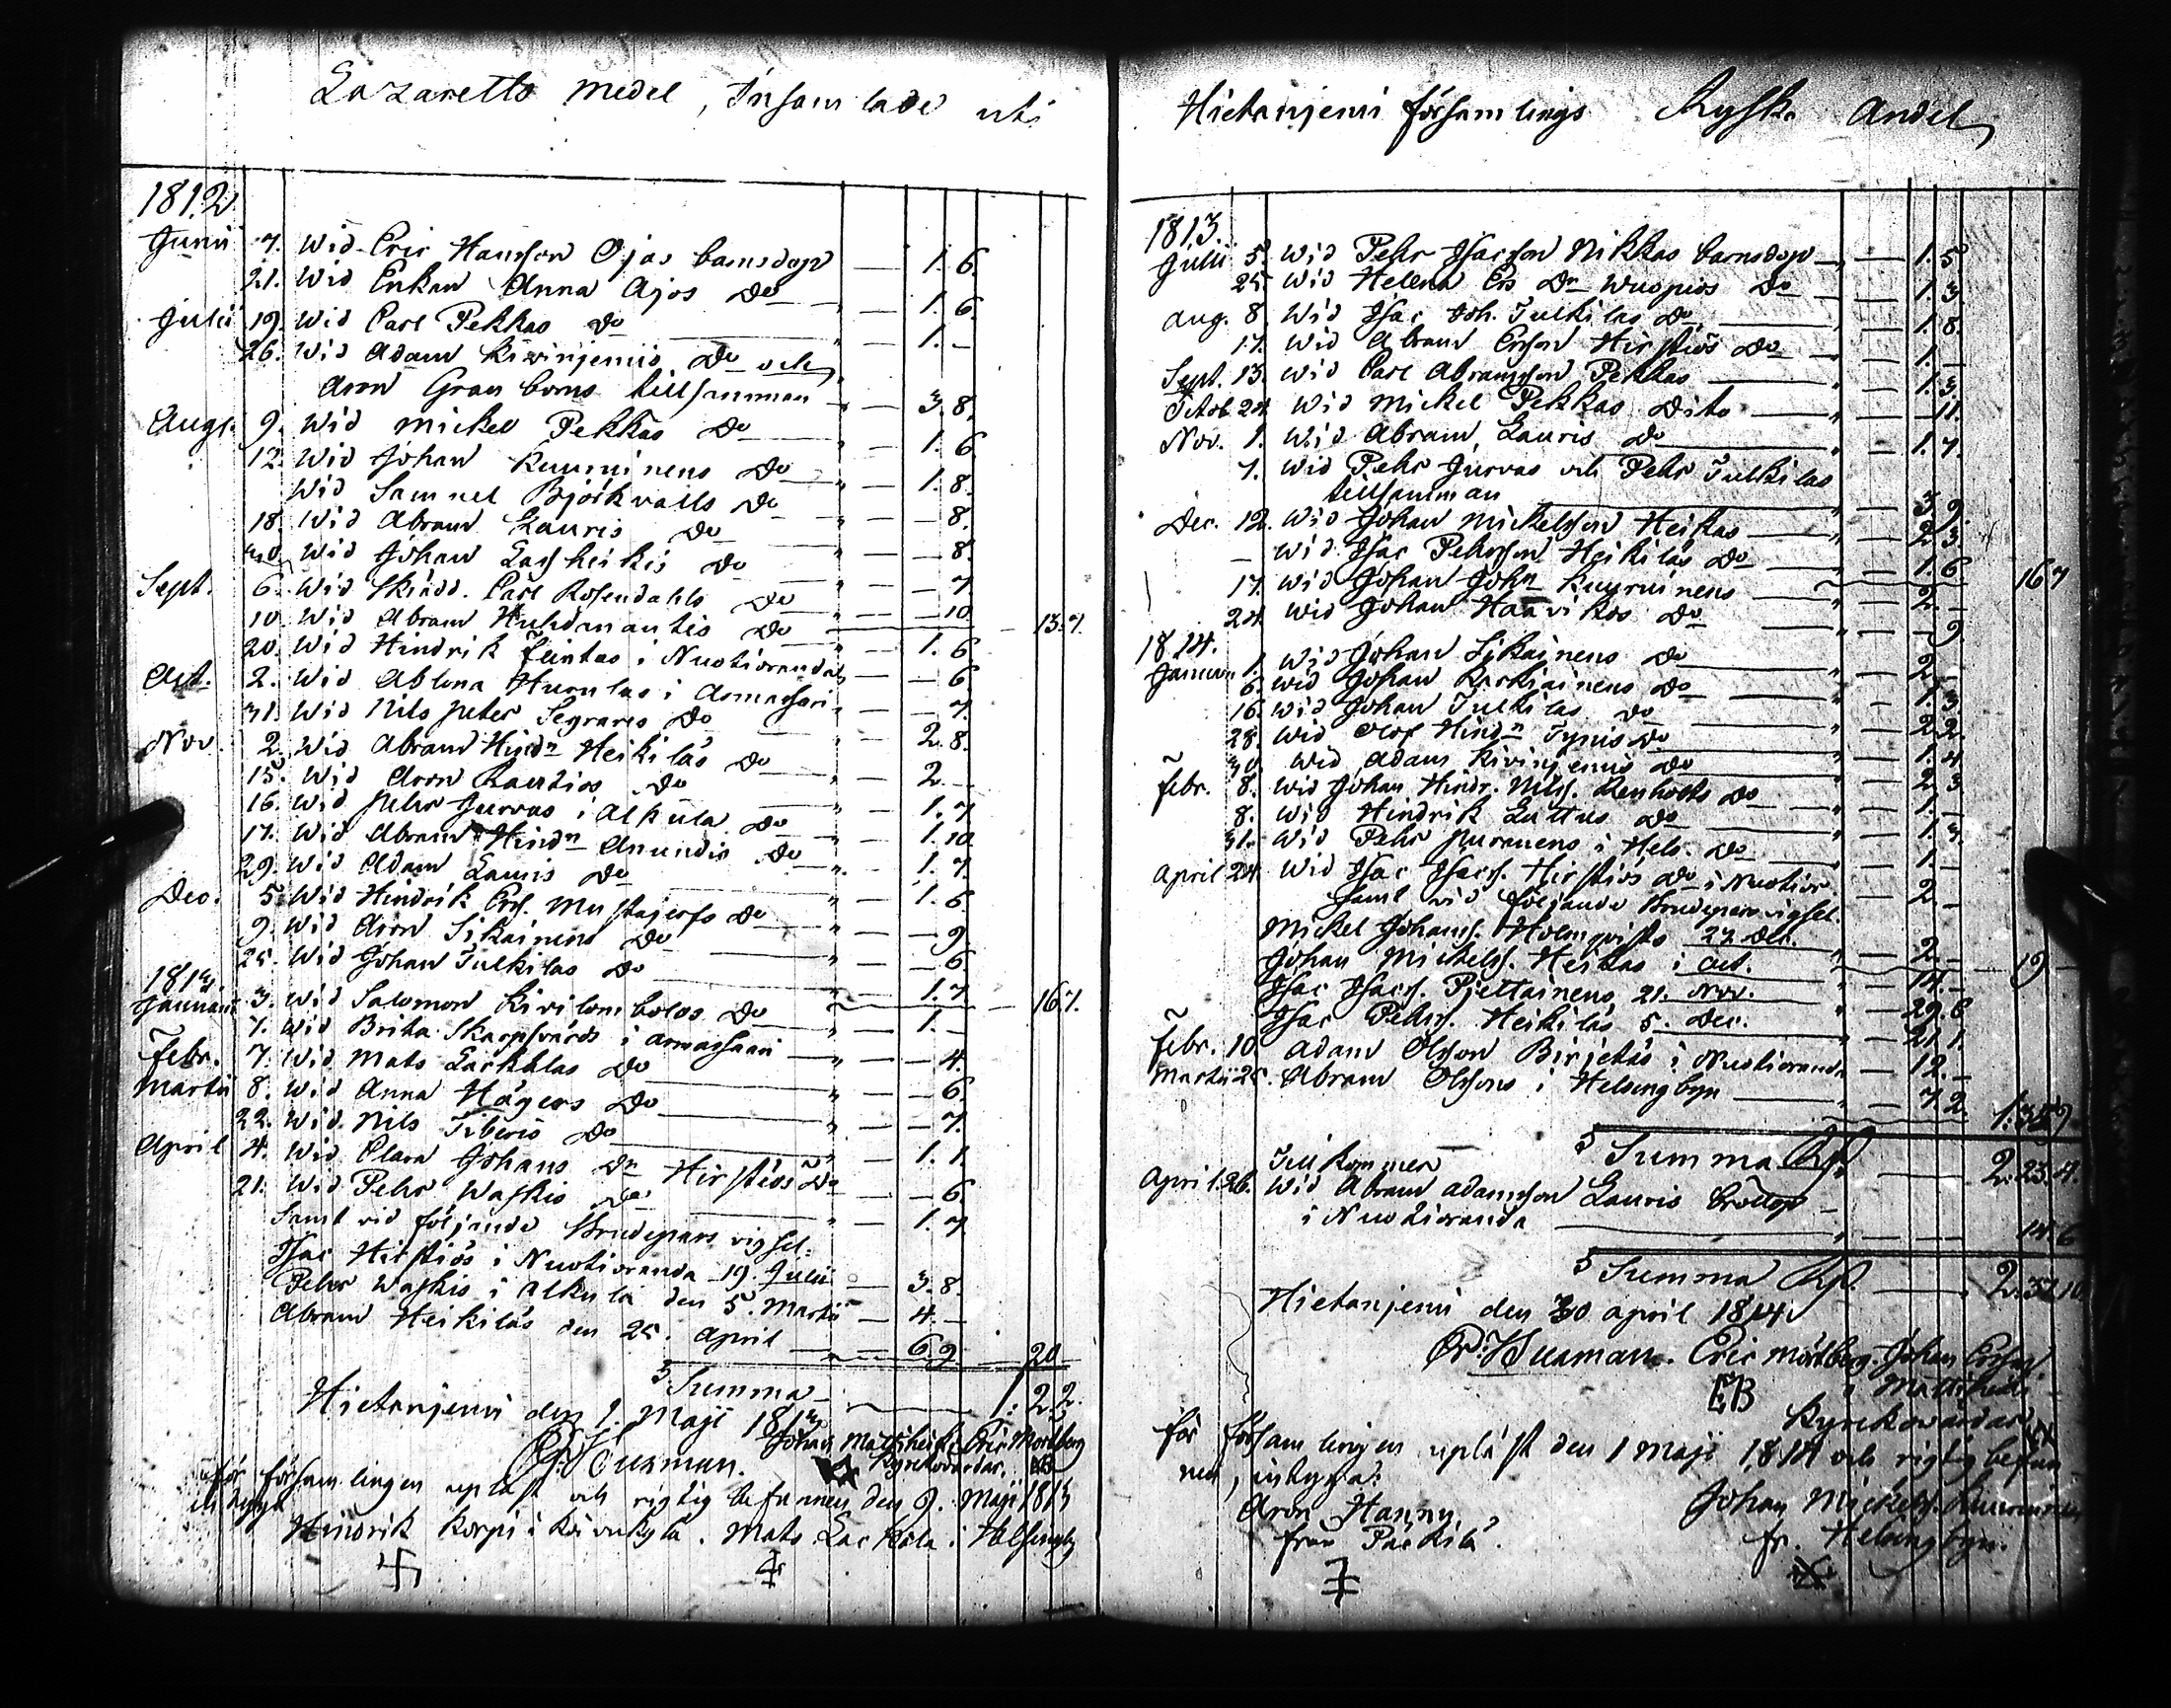 Lazaretts medel, Insamlade uti
1812
Junii 7. Wid Eric Hansson Ojas barnsdop — 1. 6.
21. Wid Enkan Anna Ajos Do — 1. 6.
Julii 19. Wid Carl Pekkas Do — 1. —
26. Wid Adam Kivinjemis Do och
Aron Granboms tillsamman — 3. 8.
Aug. 9. Wid Mickel Pekkas Do — 1. 6
12. Wid Johan Kuuruinens Do — 1. 8.
Wid Samuel Björkvalls Do — 8.
18. Wid Abram Lauris Do — 8.
30. Wid Johan Lassheikis Do — 7.
Sept. 6. Wid Skindd. Carl Rosendahls Do — 10. 13. 7.
10. Wid Abram Huhdmantis Do — 1. 6
20. Wid Hindrik Flintas i Nuotioranda Do — 6.
Oct. 2. Wid Ablona Hurulas i Armassari — 7.
31. Wid Nils Peter Segrares Do — 2. 8.
Nov. 2. Wid Abram Hindn Heikiläs Do — 2. —
15. Wid Aron Rautios Do — 1. 7
16. Wid Pehr Jurvas i Alkula Do — 1. 10
17. Wid Abram Hindn Anundis Do — 1. 7.
29. Wid Adam Lauris Do — 1. 6.
Dec. 5. Wid Hindrik Ers. Mustajerfs Do — 9.
9. Wid Aron Sikainens Do — 6.
25. Wid Johan Tulkilas Do — 1. 7 16. 7.
1813
Januari 3. Wid Salomon Kivilombolos Do — 1. —
7. Wid Brita Skarpsvärds i Armassari — 4.
Febr. 7. Wid Mats Lackalas Do — 6.
Martii 8. Wid Anna Hägers Do — 7.
22. Wid Nils Tiberis Do — 1. 1.
April 4. Wid Clara Johans Dn Hirstiös Do — 6
21. Wid Pehr Waskis Do — 1. 7
Samt vid följande Brudepars vigsel:
Isac Hirstiös i Nuotioranda 19. Julii — 3. 8.
Pehr Waskis i Alkula den 5. Martii — 4. —
Abram Heikiläs den 25. April — 6. 9. 20
Summa — 1: 2. 2.
Hietanjemi den 1. Maji 1813
Johan Mattiheiki Eric Mörtberg
Kyrkovärdar.
För församlingen upläst och rigtig befunnen den 9. Maji 1813
Hindrik Korpi i Koivukylä. Mats Lackala i Helsingby
Hietanjemi församlings Ryska Andel
1813.
Julii 5. Wid Pehr Isacsson Nikkas barnsdop — 1. 5
25. Wid Helena Ers Dr Wuopios Do — 1. 3.
Aug. 8. Wid Isac Joh. Tulkilas Do — 1. 8.
17. Wid Abram Ersson Hirstiös Do — 1. —
Sept. 13. Wid Carl Abramsson Pekkas — 1. 3.
Octob. 24. Wid Mickel Pekkas Dito — 11.
Nov. 1. Wid Abram Lauris Do — 1. 7.
7. Wid Pehr Jurvas och Pehr Tulkilas
tillsamman — 3. 9.
Dec. 12. Wid Johan Mickelsson Heikas — 2. 3.
Wid Isac Pehrsson Heikiläs Do — 1. 6. 16 7
17. Wid Johan John Kuuruinens — 2. —
24. Wid Johan Haavikos Do — 9.
1814.
Januar. 1. Wid Johan Sikainens Do — 2. —
6. Wid Johan Karkiainens Do — 1. 3
16. Wid Johan Tulkilas Do — 2. 2.
28. Wid Olof Hindn Tynis Do — 1. 4
30. Wid Adam Kivinjemis Do — 2. 3
Febr. 8. Wid Johan Hindr. Nils. Renholts Do — 1. —
8. Wid Hindrik Luttus Do — 1. 3.
31. Wid Pehr Puranens i Hels. Do — 1. —
April 24. Wid Isac Isacs. Hirstiös Do i Nuotior. — 2. —
Samt vid följande Brudepars vigsel.
Mickel Johans. Holmqvists 27. Dec. — 2. — 19 —
Johan Mickels. Heikas i Oct. — 14. —
Isac Isacs. Pjettainens 21. Nov. — 29. 6
Isac Pehrs. Heikiläs 5. Dec. — 21. 1.
Febr. 10 Adam Olsson Birjetäs i Nuotioranda — 12. —
Martii 25. Abram Olssons i Helsingbyn — 7. 2. 1. 35. 9
Summa — 2. 23. 4.
Till kommer
April 26. Wid Abram Adamsson Lauris bröllop
i Nuotioranda — 14. 6
Summa — 2. 37. 10
Hietanjemi den 30 April 1814.
Eric Mörtberg. Johan Ersson
EB Mattiheiki
Kyrkovärdar
För församlingen upläst den 1 Maji 1814 och rigtig befun
nen, intyga:
Aron Hannu Johan Mickels. Kuuruinen
från Päckilä. fr. Helsingbyn.